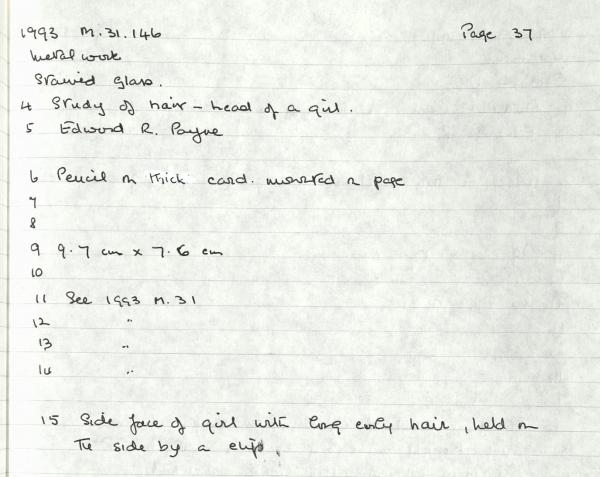 1993 M.31.146 Page 37
Metal work
Stained Glass.
4 Study of hair - head of a girl.
5 Edward R. Payne
6 Pencil on thick card. mounted on page
7
8
9 9.7 cm x 7.6 cm
10
11 See 1993 M.31
12 "
13 "
14 "
15 Side face of girl with long curly hair, held on
the side by a clip.